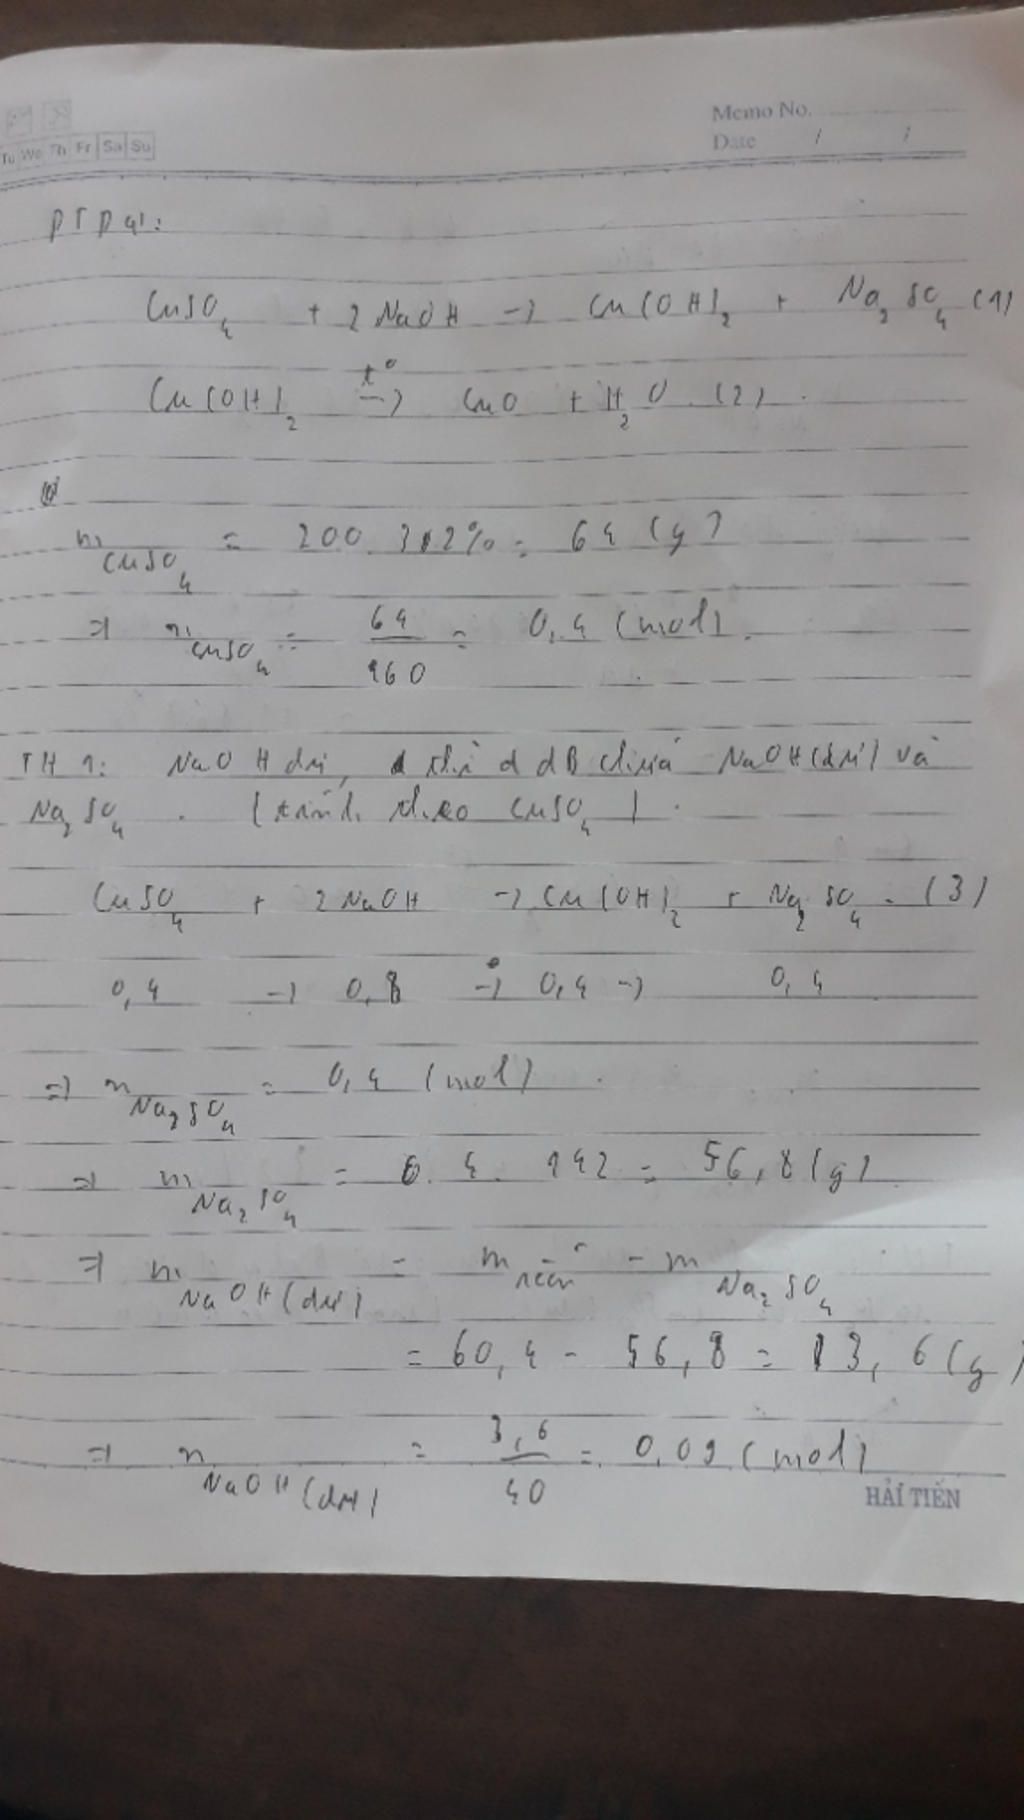 Memo No.
Tu We Th Fr Sa Su
Date / /
PTPƯ:
CuSO4 + 2NaOH → Cu(OH)2 + Na2SO4 (1)
Cu(OH)2 t° → CuO + H2O (2).
mCuSO4 = 200.32% = 64 (g)
=> nCuSO4 = 64/160 = 0,4 (mol).
TH1: NaOH dư, thì d dB chứa NaOH (dư) và
Na2SO4. (tính theo CuSO4).
CuSO4 + 2NaOH → Cu(OH)2 + Na2SO4. (3)
0,4 → 0,8 → 0,4 → 0,4
=> nNa2SO4 = 0,4 (mol).
=> mNa2SO4 = 0.4.142 = 56,8 (g)
=> mNaOH (dư) = mrắn - mNa2SO4
= 60,4 - 56,8 = 3,6 (g)
=> nNaOH (dư) = 3,6/40 = 0,09 (mol)
HẢI TIẾN